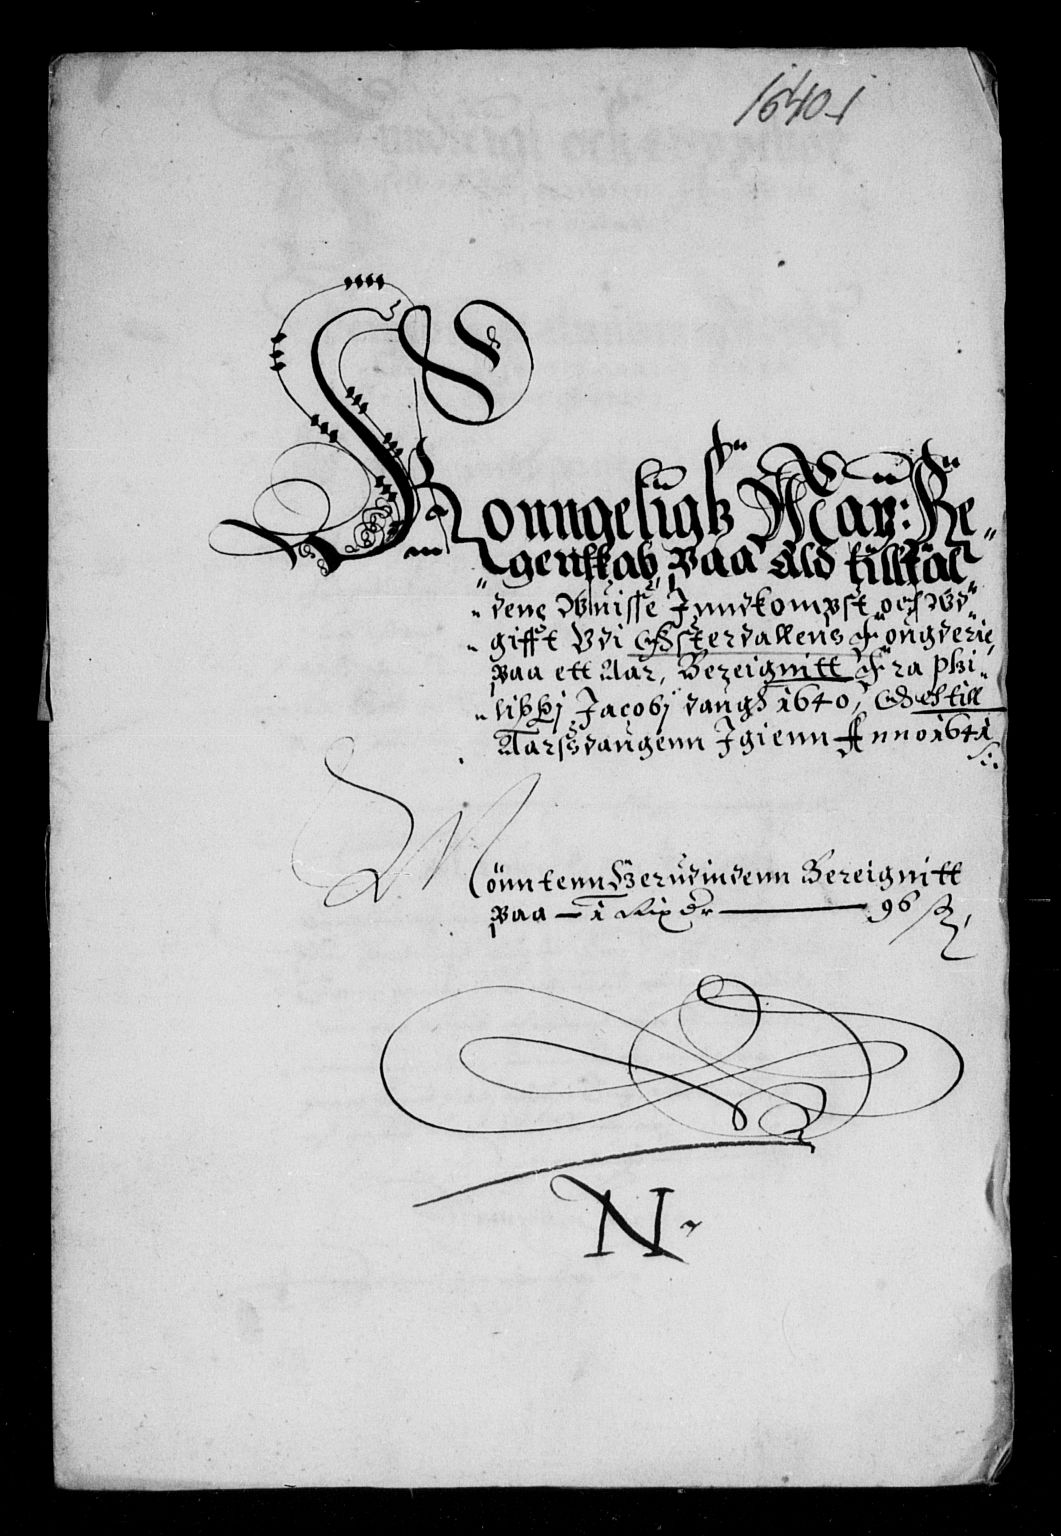 1640-1
Konngelighs May: Re¬
genskab paa Ald tilfal¬
dene Wuisse Inndkompst och Wd¬
gifft Vdi Østerdallens Fougderie
paa ett Aar, Bereignitt Fra phi¬
lippi Jacobj daugh 1640, Och till
Aarsdaugenn Igienn Anno 1641
Mönntenn Herudindenn Bereignitt
paa — 1 Rixdr — 96 ß
N.